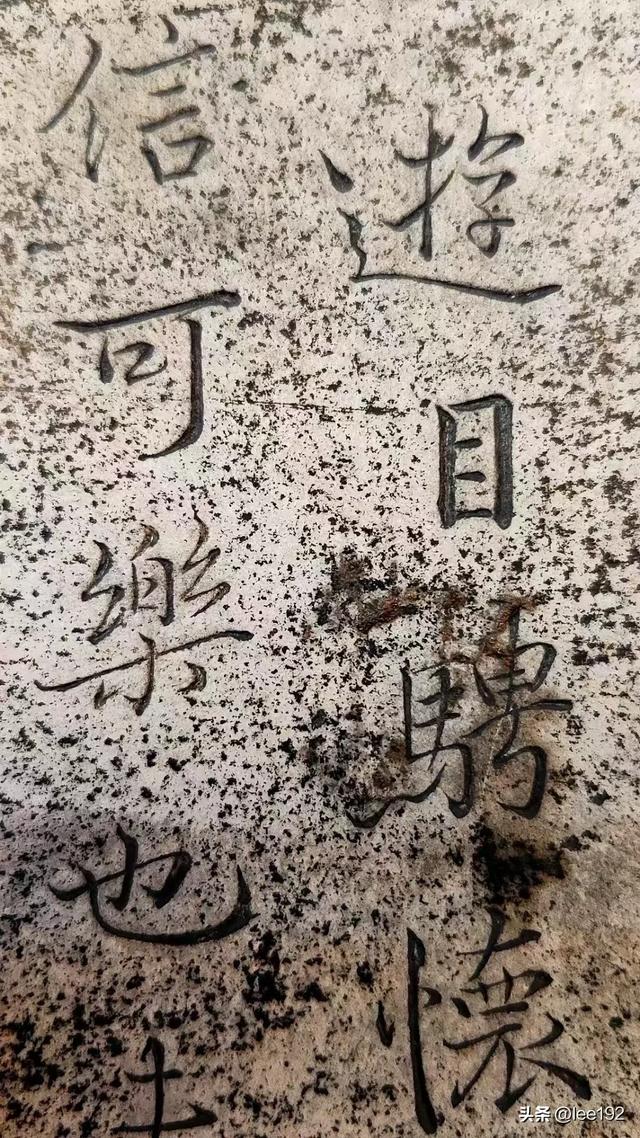 遊目騁懷
信可樂也
头条 @lee192